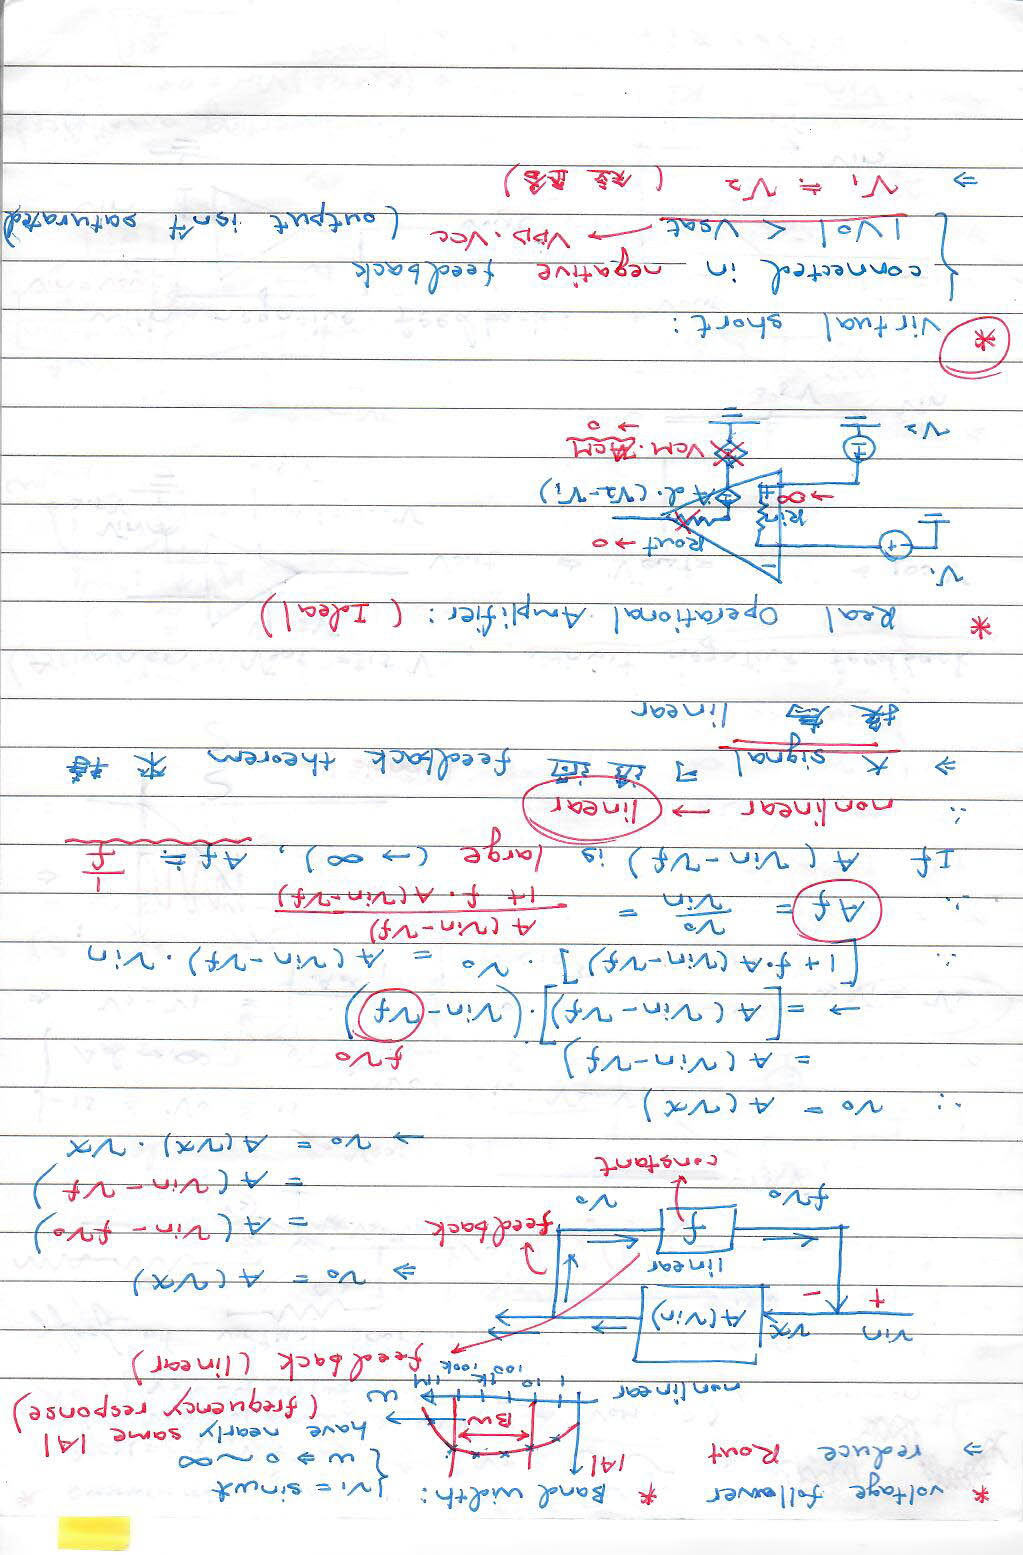 * voltage follower * Band width: { vi = sinωt
⇒ reduce Rout
ω ⇒ 0 ~ ∞
|A|
BW
have nearly same |A|
(frequency response)
ω
1 10 100 1k 100k 1M
nonlinear
feedback (linear)
vin + - vx A(vin)
⇒ vo = A(vx)
linear
f
feedback
= A(vin - fvo)
fvo vo
= A(vin - vf)
constant
→ vo = A(vx)·vx
∴ vo = A(vx)
= A(vin - vf)
fvo
→ = [A(vin - vf)]·(vin - vf)
∴ [1+f·A(vin-vf)]·vo = A(vin-vf)·vin
∴ Af = vo/vin = A(vin-vf)/1+f·A(vin-vf)
If A(vin-vf) is large (→∞), Af ≒ 1/f
∴ nonlinear → linear
⇒ 大 signal 可 feedback theorem 來
linear
* Real Operational Amplifier: (Ideal)
V1
Rout → 0
Rin → ∞
Ad·(V2-V1)
VCM·ACM → 0
V2
* Virtual short:
{ connected in negative feedback
|Vo| < Vsat → VDD.VCC (output isn't saturated)
⇒ V1 ≒ V2